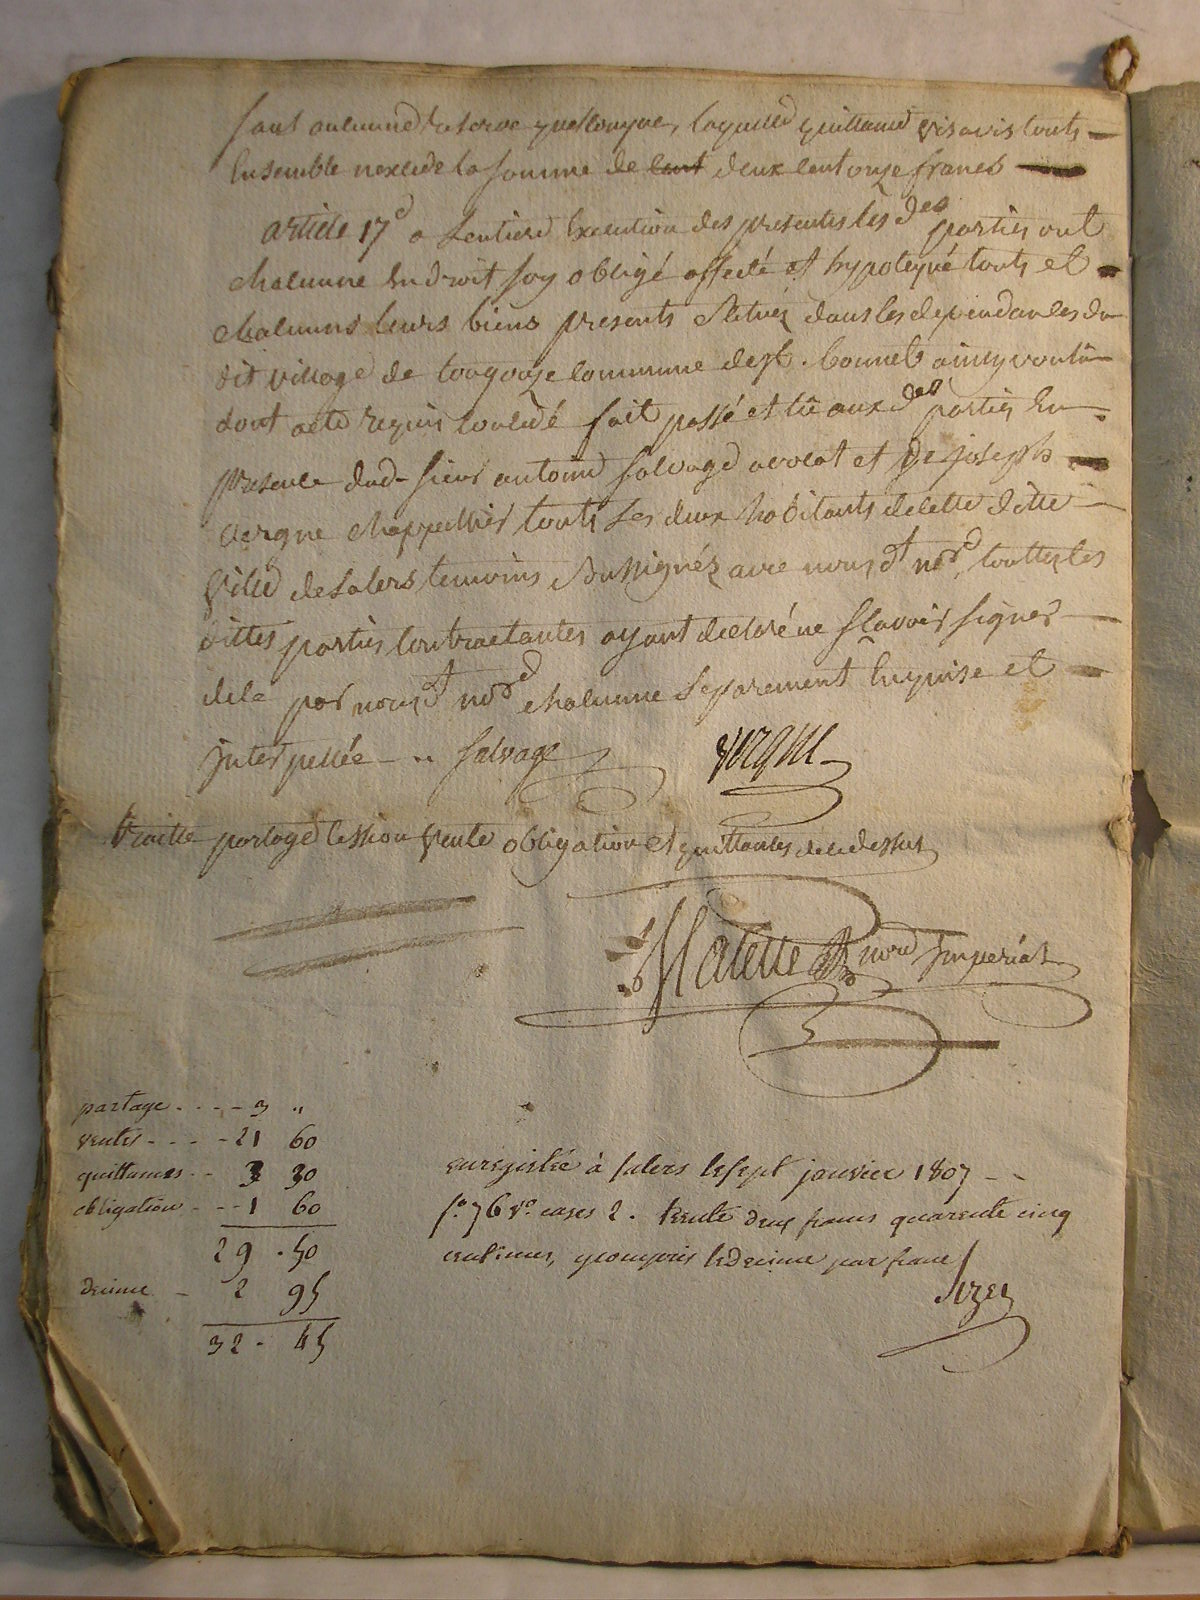 sant aucunne reserve quelconque, laquelle quittance vis avis touts
Ensemble nexcede la somme de cent deux cent onze francs
article 17e a lentiere Execution des presentes les des parties ont
chacunne En droit soy obligé affecté et hypotequé touts et
chacuns leurs biens presents situez dans les dependances du
dit village de commune de st. bonnet ainsy voulu
dont acte requis concedé fait passé et lû aux des parties En
presence dud. sieur antoine salvage avocat et de joseph
vergne chappellier touts les deux habitants de cette ditte
ville de salers temoins soussignéz avec nous dt nore, touttes les
dittes parties contractantes ayant declaré ne sçavoir signer
de ce par nous dt nore chacunne separement Enquise et
interpellée - .. salvage vergne
traitte partage cession vente obligation et quittances de cy dessus
nore Imperial
partage - - - - 3 "
ventes - - - - 21 60
quittances - - 3 30
obligation - - - 1 60
29 . 50
decime - 2 95
32 - 45
enregistré à salers le sept janvier 1807 - -
fo. 76 vo. cases 2. trente deux francs quarente cinq
centimes, y compris le decime par franc